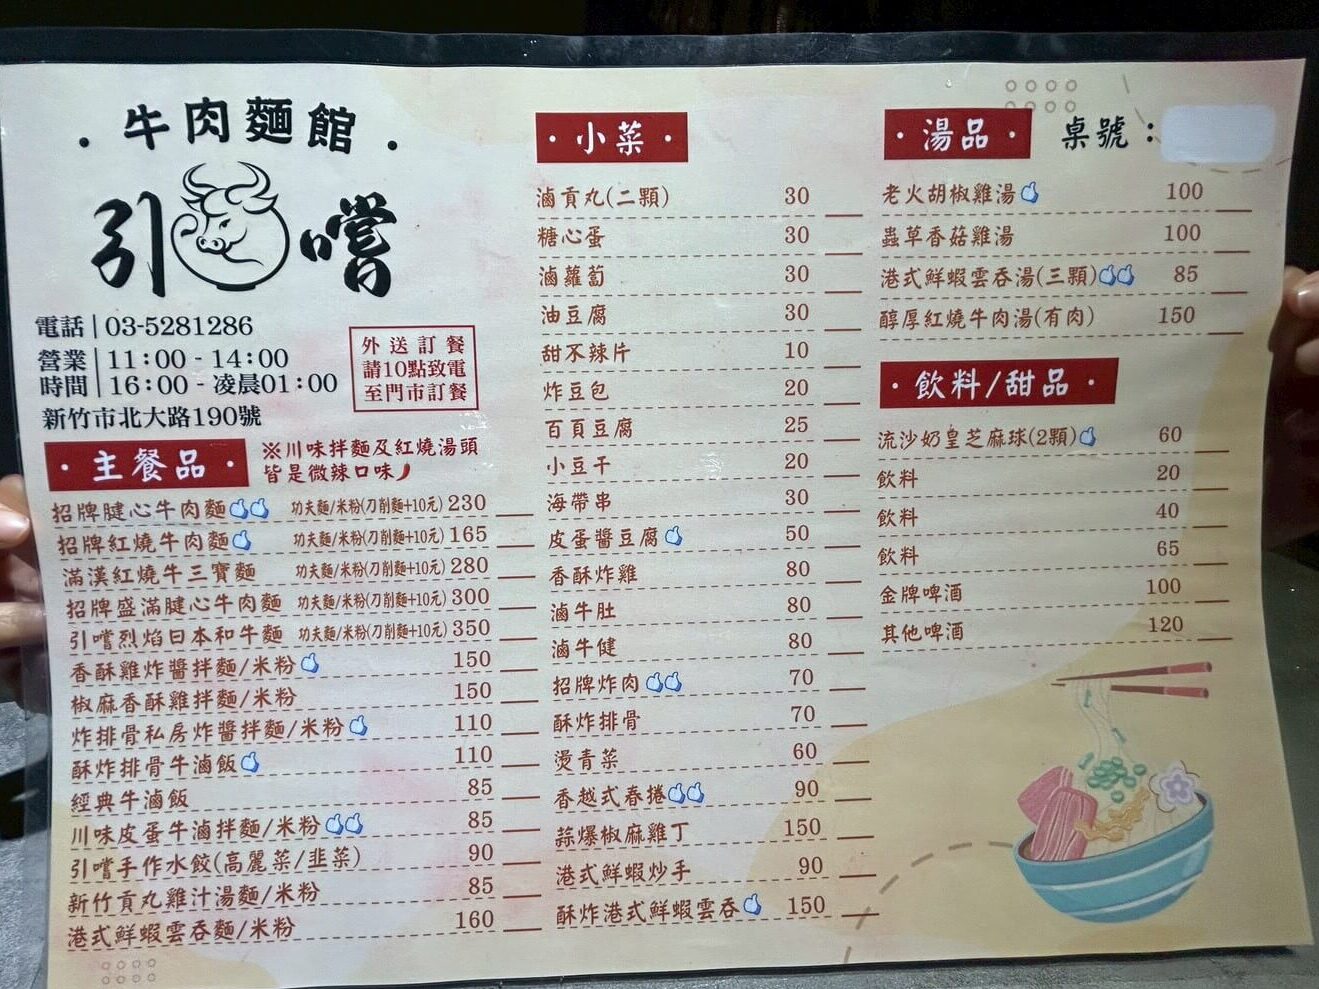 ·牛肉麵館·
引嚐
電話|03-5281286
營業|11:00 - 14:00
時間|16:00 - 凌晨01:00
新竹市北大路190號
外送訂餐
請10點致電
至門市訂餐
·主餐品·
※川味拌麵及紅燒湯頭
皆是微辣口味
招牌腱心牛肉麵 功夫麵/米粉(刀削麵+10元) 230
招牌紅燒牛肉麵 功夫麵/米粉(刀削麵+10元) 165
滿漢紅燒牛三寶麵 功夫麵/米粉(刀削麵+10元) 280
招牌盛滿腱心牛肉麵 功夫麵/米粉(刀削麵+10元) 300
引嚐烈焰日本和牛麵 功夫麵/米粉(刀削麵+10元) 350
香酥雞炸醬拌麵/米粉 150
椒麻香酥雞拌麵/米粉 150
炸排骨私房炸醬拌麵/米粉 110
酥炸排骨牛滷飯 110
經典牛滷飯 85
川味皮蛋牛滷拌麵/米粉 85
引嚐手作水餃(高麗菜/韭菜) 90
新竹貢丸雞汁湯麵/米粉 85
港式鮮蝦雲吞麵/米粉 160
·小菜·
滷貢丸(二顆) 30
糖心蛋 30
滷蘿蔔 30
油豆腐 30
甜不辣片 10
炸豆包 20
百頁豆腐 25
小豆干 20
海帶串 30
皮蛋醬豆腐 50
香酥炸雞 80
滷牛肚 80
滷牛健 80
招牌炸肉 70
酥炸排骨 70
燙青菜 60
香越式春捲 90
蒜爆椒麻雞丁 150
港式鮮蝦炒手 90
酥炸港式鮮蝦雲吞 150
·湯品·
桌號：
老火胡椒雞湯 100
蟲草香菇雞湯 100
港式鮮蝦雲吞湯(三顆) 85
醇厚紅燒牛肉湯(有肉) 150
·飲料/甜品·
流沙奶皇芝麻球(2顆) 60
飲料 20
飲料 40
飲料 65
金牌啤酒 100
其他啤酒 120